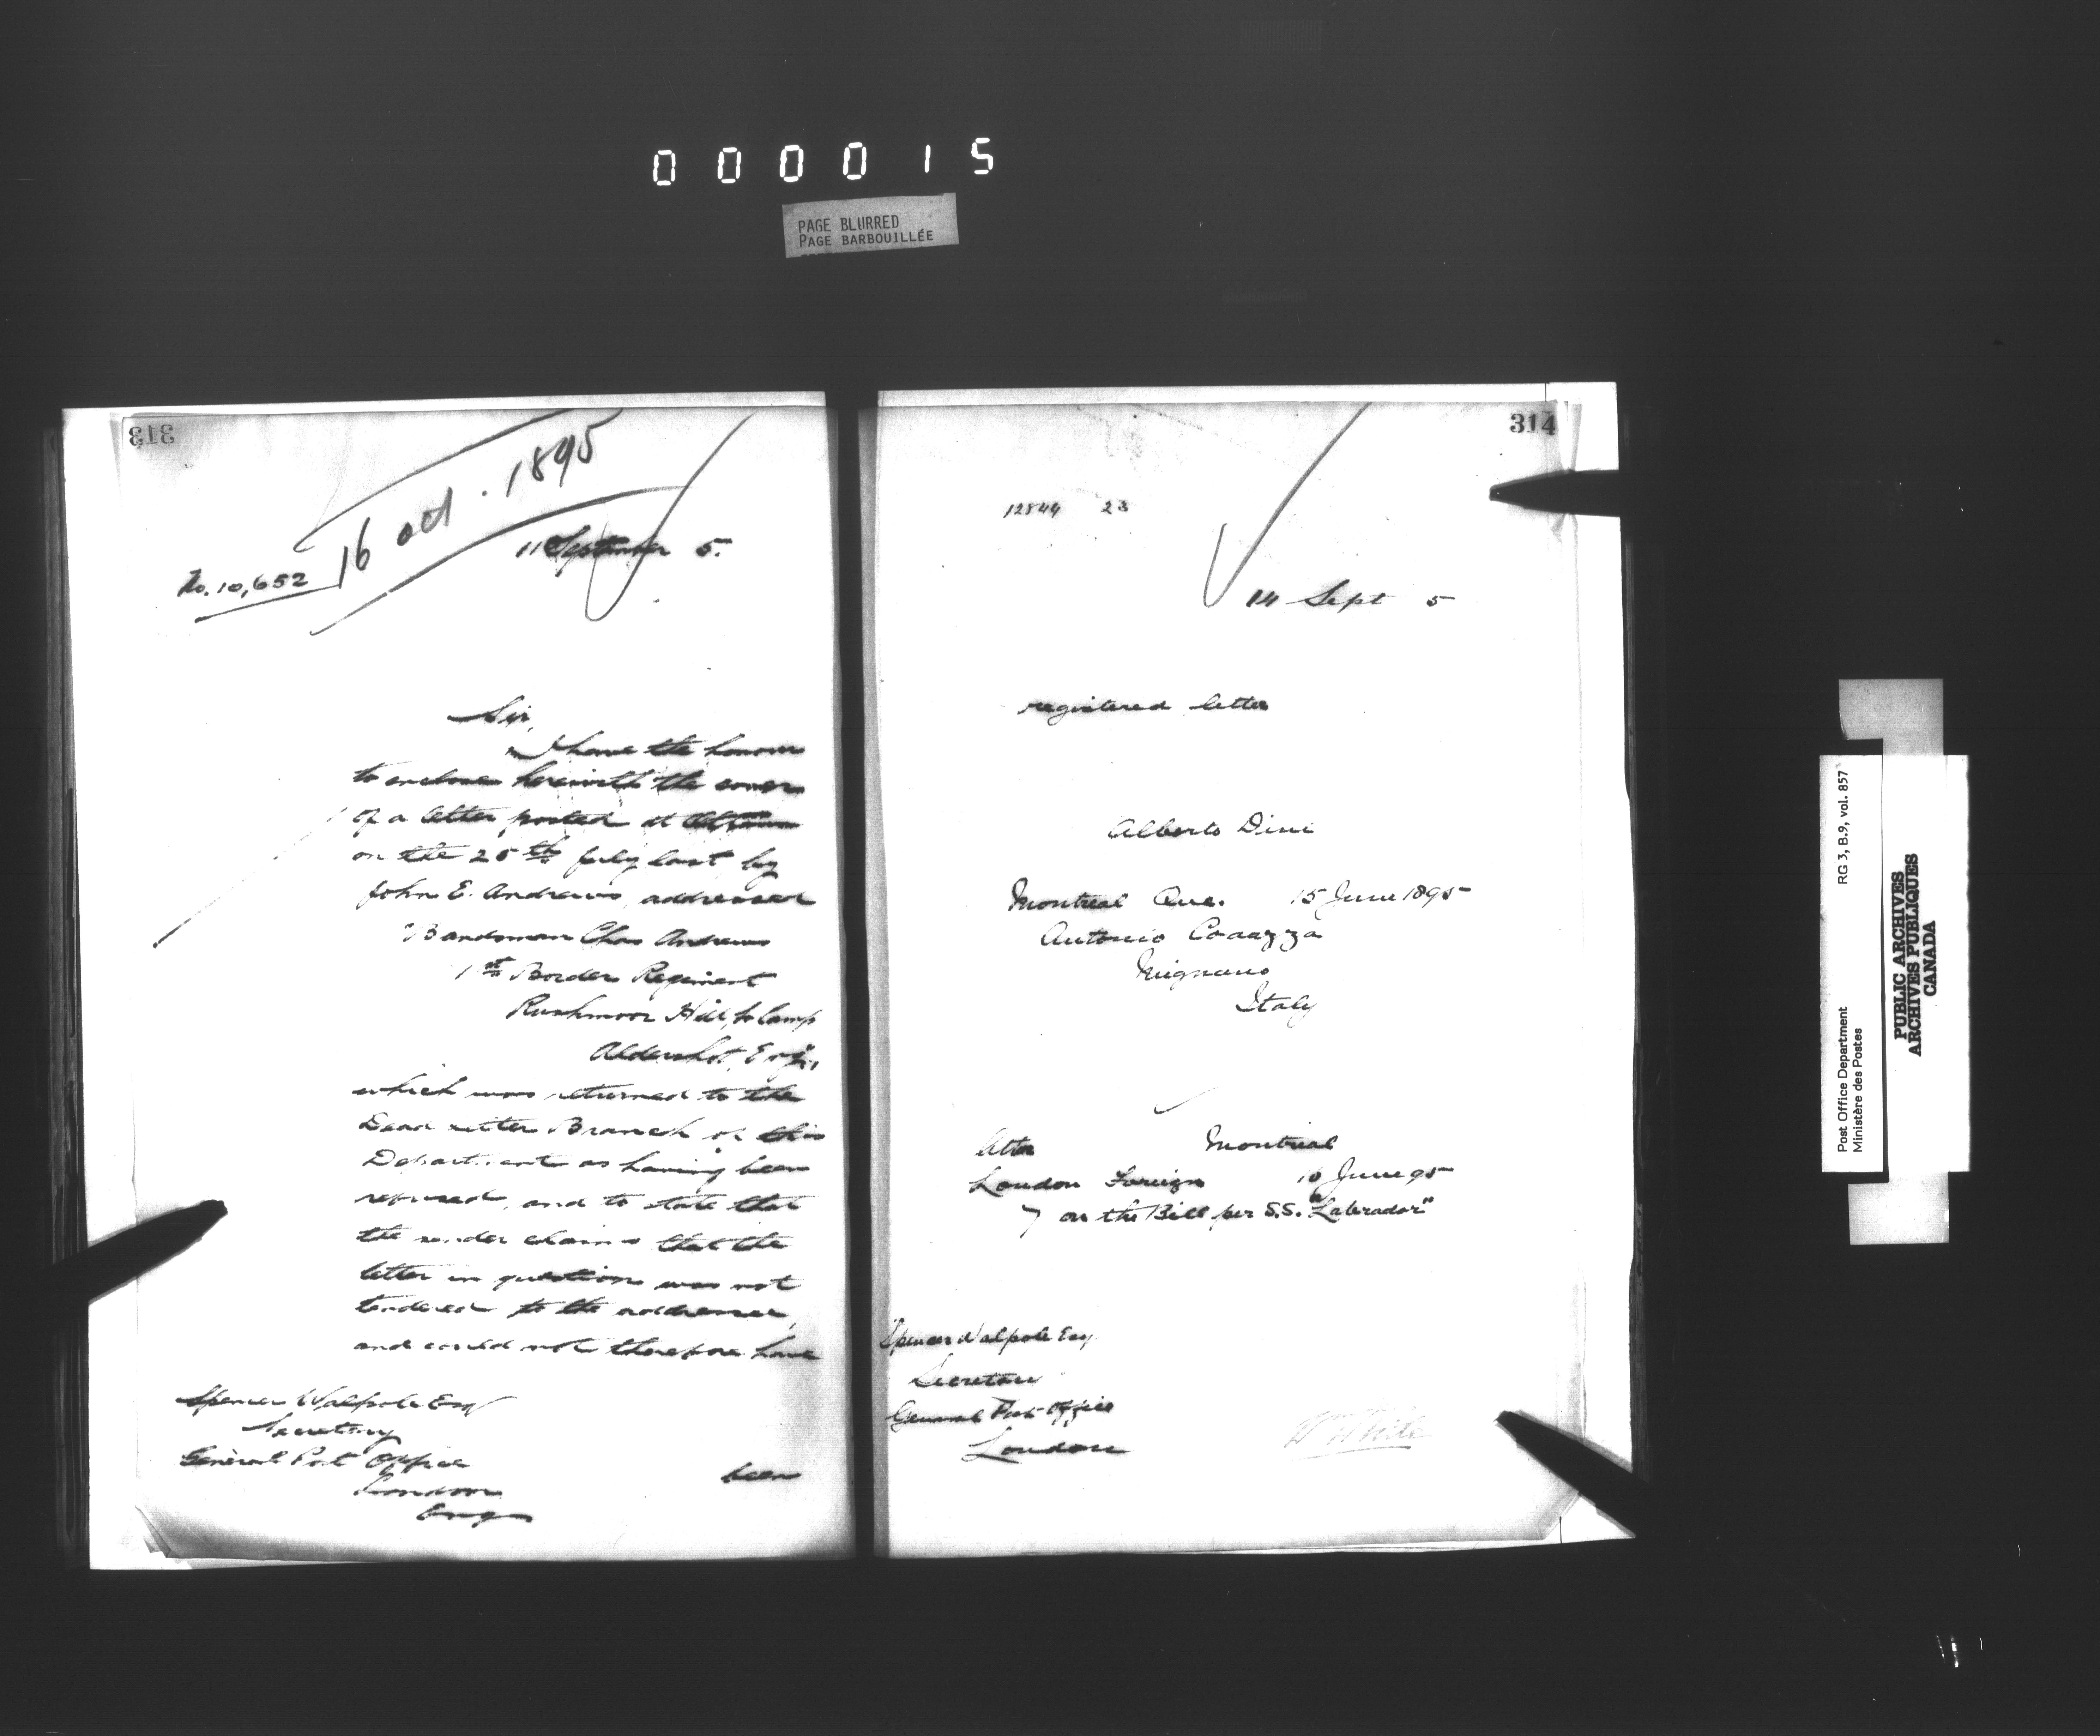 000015
PAGE BLURRED
PAGE BARBOUILLÉE
313
16 oct. 1895
11 September 5.
No. 10,652
Sir,
I have the honour
to enclose herewith the cover
of a letter posted at
on the 25th July last by
John E. Andrews, addressed
"Bandsman Chas Andrews
1st Border Regiment
Rushmoor Hill, Camp
Aldershot, Eng.",
which was returned to the
Dead Letter Branch of this
Department as having been
refused, and to state that
the sender claims that the
letter in question was not
tendered to the addressee,
and could not therefore have
Spencer Walpole Esq
Secretary
General Post Office
London
Eng
been
314
12844 23
14 Sept 5
registered letter
Alberto Dini
Montreal Que. 15 June 1895
Antonio
Mignano
Italy
letter Montreal
London Foreign 16 June 95
7 on the Bill per S.S. "Labrador"
Spencer Walpole Esq
Secretary
General Post Office
London
W White
RG 3, B.9, vol. 857
Post Office Department
Ministère des Postes
PUBLIC ARCHIVES
ARCHIVES PUBLIQUES
CANADA